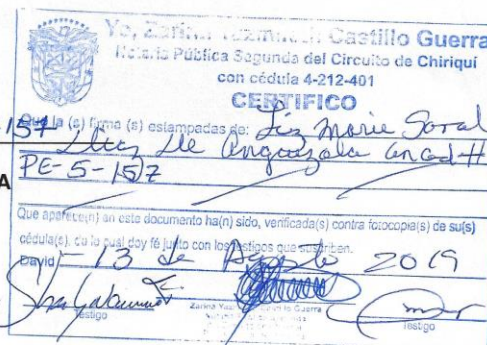 Yo, Castillo Guerra
Notaria Pública Segunda del Circuito de Chiriquí
con cédula 4-212-401
CERTIFICO
Que la (s) firma (s) estampadas de: Liz Marie
157 de
A PE-5-157
Que aparece(n) en este documento ha(n) sido, verificada(s) contra fotocopia(s) de su(s)
cédula(s), de lo cual doy fé junto con los testigos que suscriben.
David 13 de Agosto 2019
Testigo
Testigo